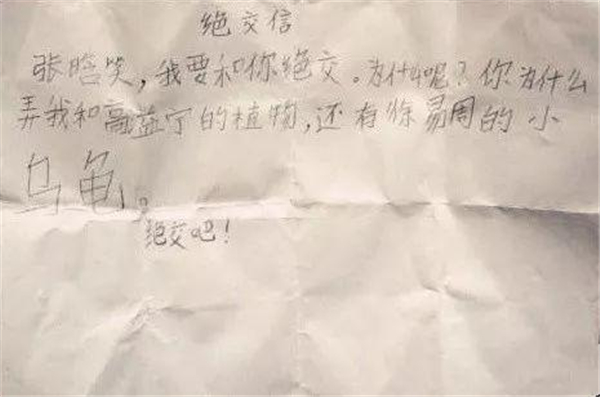 绝交信
张晗笑，我要和你绝交。为什么呢？你为什么
弄我和高益丁的植物，还有徐易周的小
乌龟。
绝交吧！